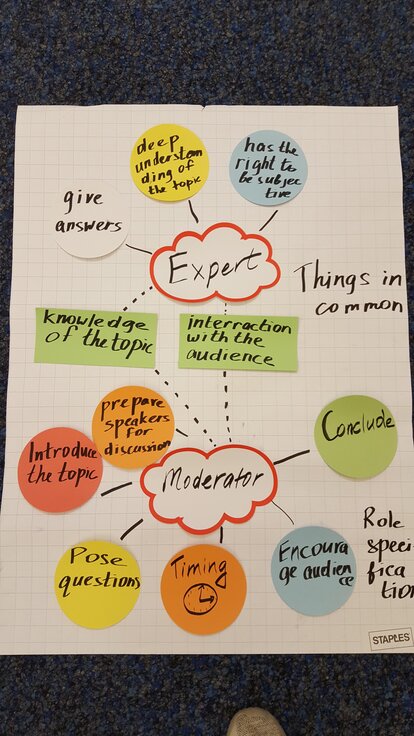 deep
understan
ding of
the topic
has the
right to
be subjec
tive
give
answers
Expert
Things in
common
knowledge
of the topic
interraction
with the
audience
prepare
speakers
for
discussion
Conclude
Introduce
the topic
Moderator
Pose
questions
Timing
Encoura
ge audien
ce
Role
speci
fica
tion
STAPLES